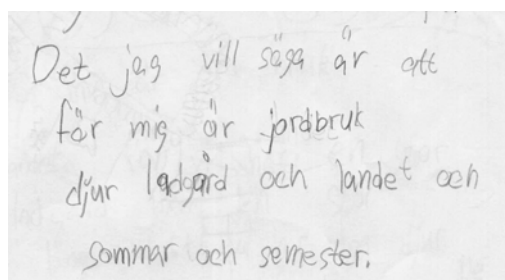 Det jag vill säga är att
för mig är jordbruk
djur ladgård och landet och
sommar och semester.